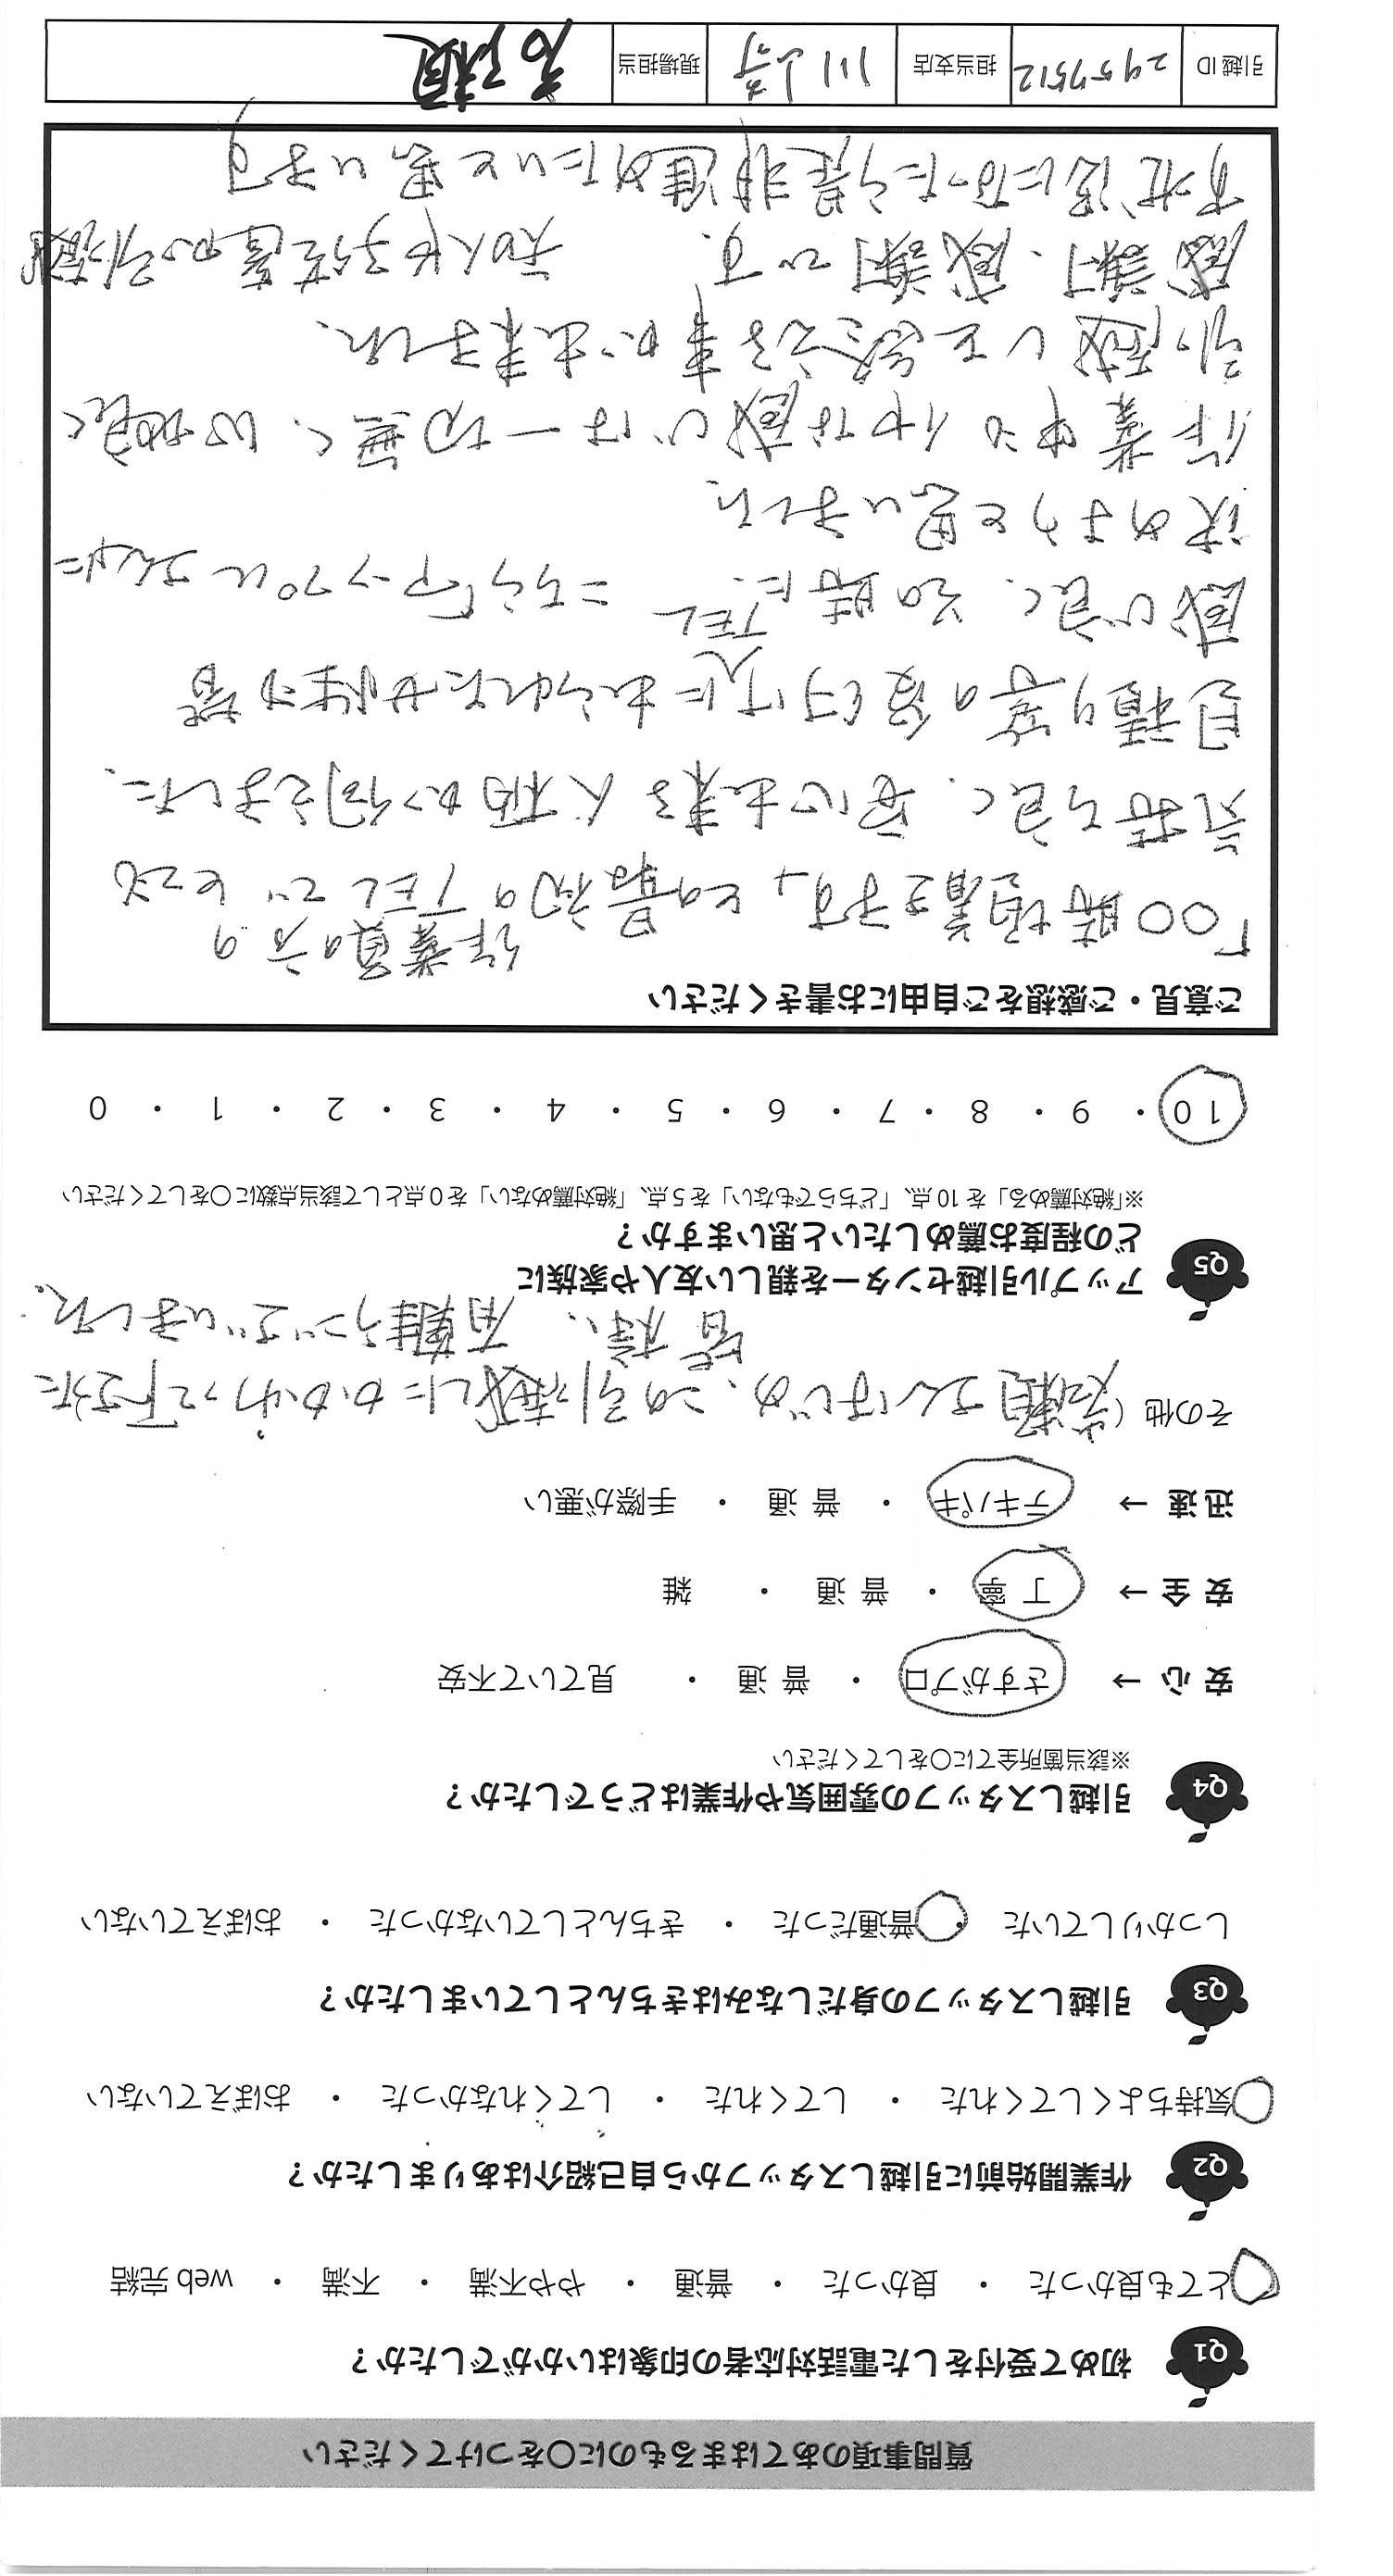 質問事項のあてはまるものに〇をつけてください
Q1 初めて受付をした電話対応者の印象はいかがでしたか？
とても良かった ・ 良かった ・ 普通 ・ やや不満 ・ 不満 ・ web 完結
Q2 作業開始前に引越しスタッフから自己紹介はありましたか？
気持ちよくしてくれた ・ してくれた ・ してくれなかった ・ おぼえていない
Q3 引越しスタッフの身だしなみはきちんとしていましたか？
しっかりしていた 普通だった ・ きちんとしていなかった ・ おぼえていない
Q4 引越しスタッフの雰囲気や作業はどうでしたか？
※該当箇所全てに〇をしてください
安 心 → さすがプロ ・ 普 通 ・ 見ていて不安
安 全 → 丁 寧 ・ 普 通 ・ 雑
迅 速 → テキパキ ・ 普 通 ・ 手際が悪い
その他（ さんはじめ、この引越しにかかわって下さった
皆様、有難うございました。
Q5 アップル引越センターを親しい友人や家族に
どの程度お薦めしたいと思いますか？
※「絶対薦める」を 10 点、「どちらでもない」を 5 点、「絶対薦めない」を 0 点として該当点数に〇をしてください
10 ・ 9 ・ 8 ・ 7 ・ 6 ・ 5 ・ 4 ・ 3 ・ 2 ・ 1 ・ 0
ご意見・ご感想をご自由にお書きください
作業員の方の
「〇〇時頃着きます」との最初のTELでとても
気持ち良く、安心出来る人柄が伺えました。
見積り等の受付に出られた女性の皆
感じ良く、その時に、 こちら「アップル さんに
TEL
決めようと思いました
作業中もイヤな感じは一切無く、心地良く
引っ越しを終える事が出来ました。
感謝、感謝です。 知人や子供達が引越し
す状況になったら是非進めたいと思います
引越 ID 2957512 担当支店 川崎 現場担当